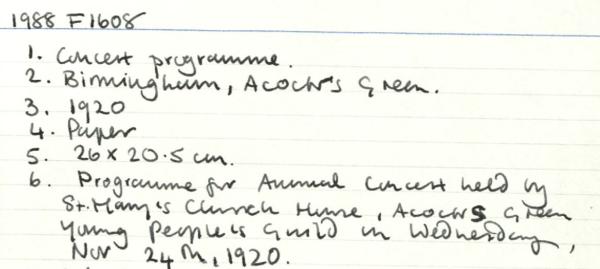 1988 F1608
1. Concert programme.
2. Birmingham, Acock's Green.
3. 1920
4. Paper
5. 26 x 20.5 cm.
6. Programme for Annual Concert held by
St. Mary's Church Home, Acocks Green
Young People's Guild on Wednesday,
Nov 24th, 1920.